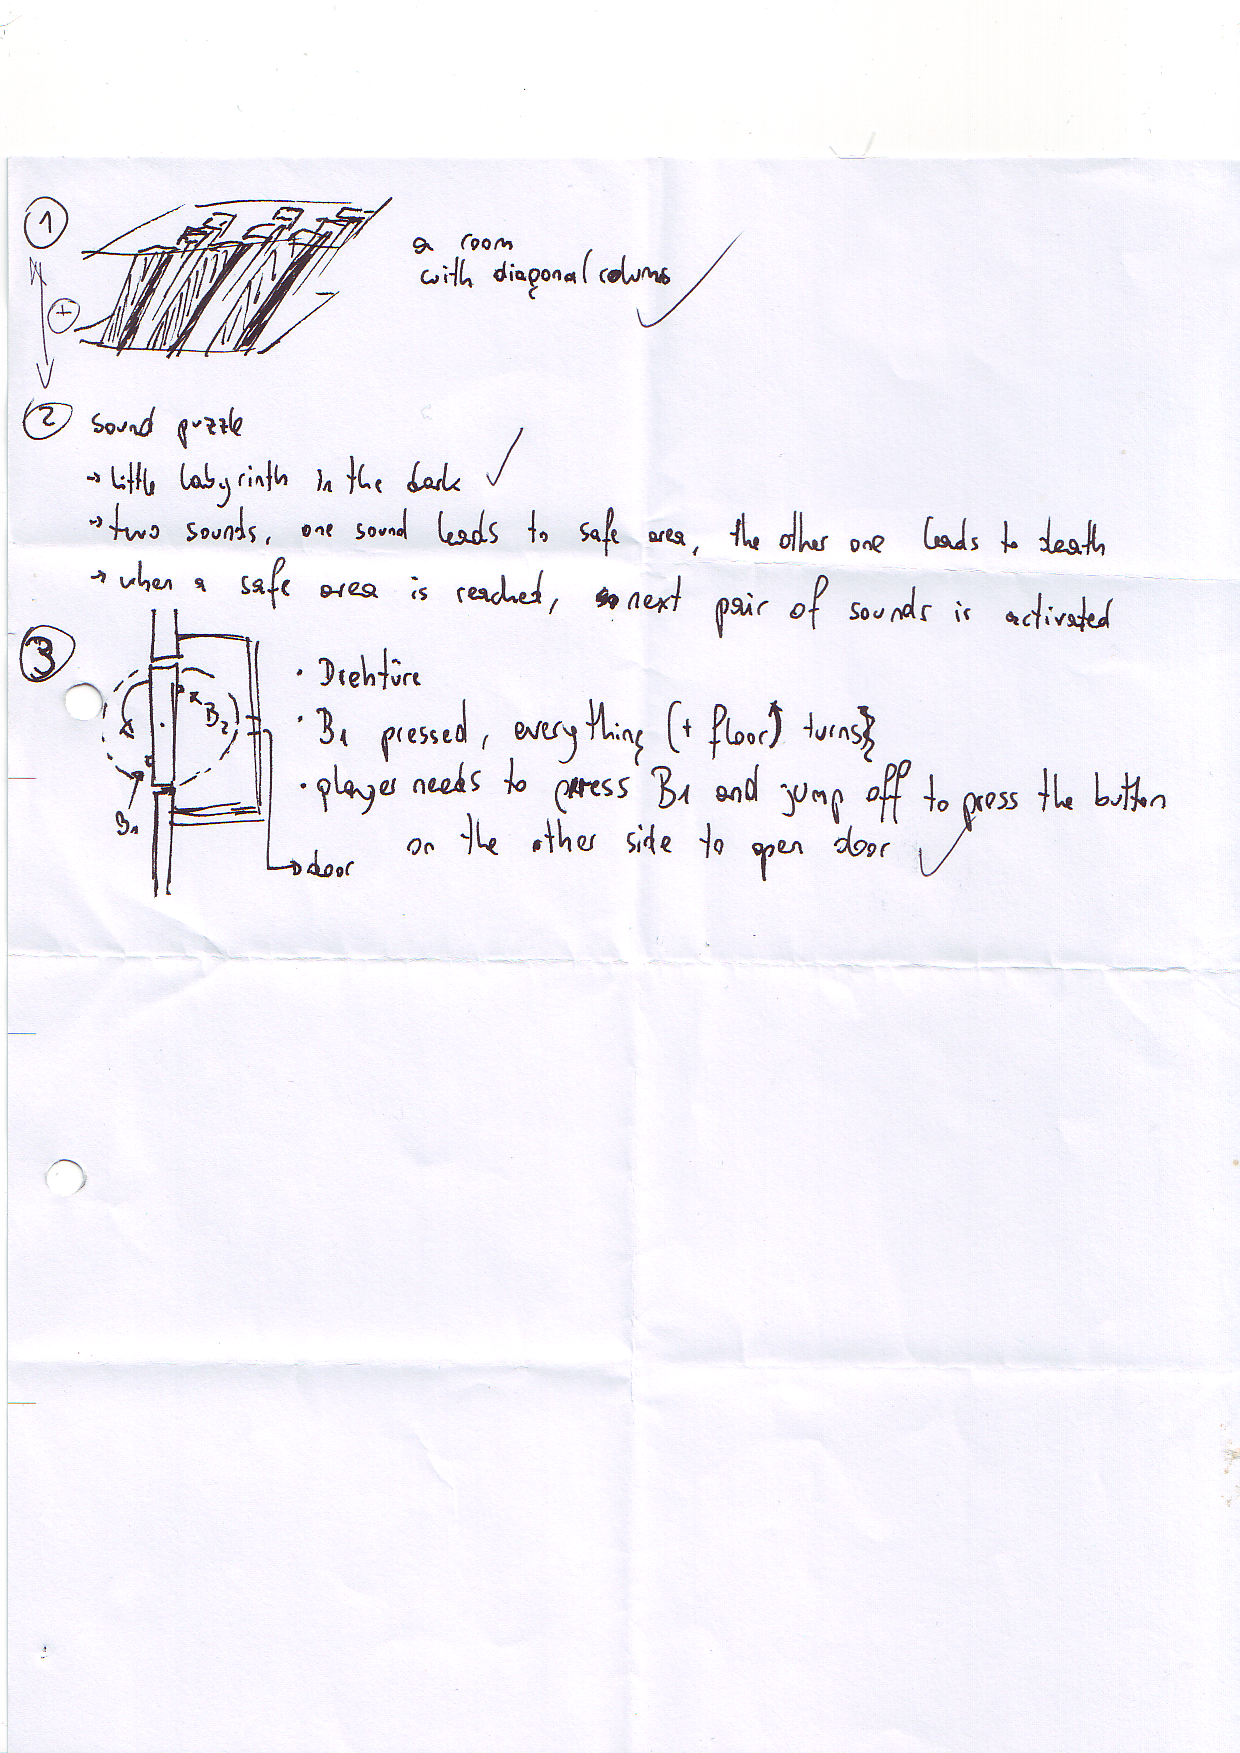 1
a room
with diagonal colums
+
2 sound puzzle
→ little labyrinth in the dark
→ two sounds, one sound leads to safe area, the other one leads to death
→ when a safe area is reached, next pair of sounds is activated
3
• Drehtüre
B2
• B1 pressed, everything (+ floor) turns
• player needs to press B1 and jump off to press the button
B1
on the other side to open door
→ door